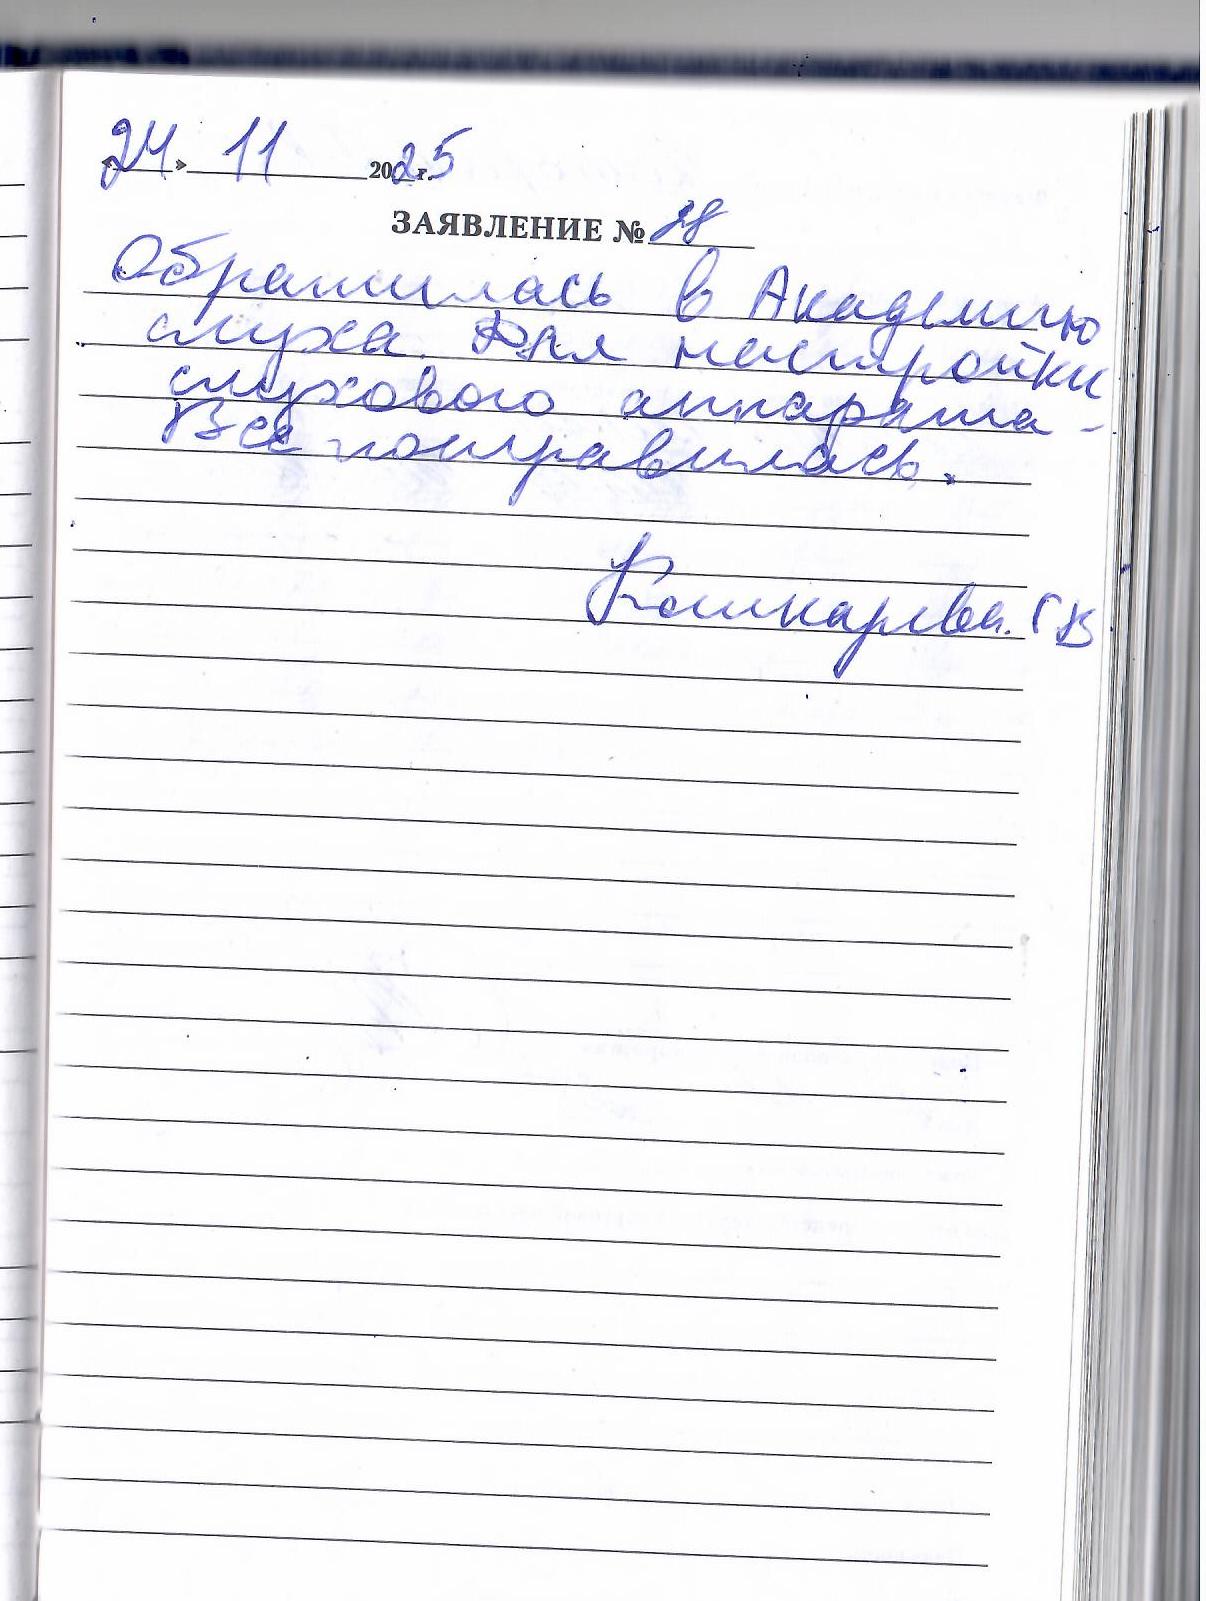 «24» 11 2025 г.
ЗАЯВЛЕНИЕ № 28
Обратилась в Академию
слуха. Для настройки
слухового аппарата -
Все понравилось.
Кошкарева. Г В